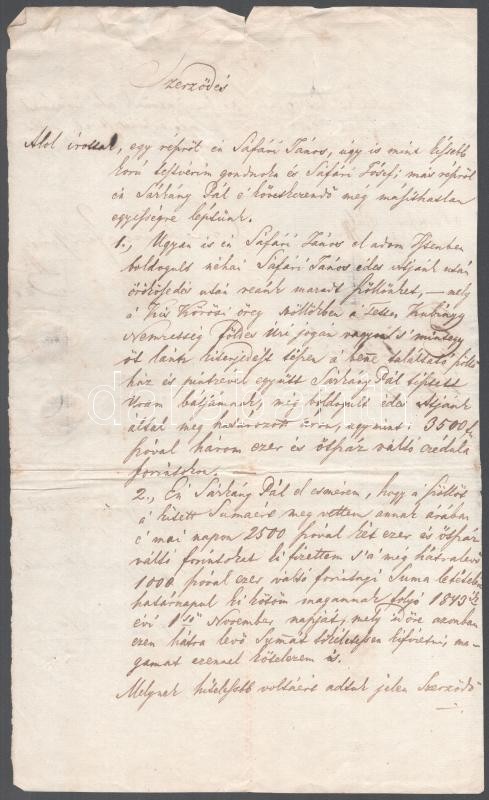 Szerződés
Alol irottak, egy részről én Safári János, úgy is mint kissebb
korú testvérim gondnoka és Safári Jósef; más részről
én Sárkány Pál é következendő meg másíthatlan
egyességre léptünk.
1., Ugyan is én Safári János el adom Istenben
boldogult néhai Safári János édes Atyánk után
örökösödés után reánk maradt szőllőnket, – mely
a Kis Kőrösi öreg szőllőkben a
Nemesség földes Úri jogán
öt lántz kiterjedésű téren a benne található
ház és pintzével együtt Sárkány Pál
Uram bátyámnak, még boldogult édes Atyánk
által meg határozott áron, úgymint 3500 f
szóval három ezer és ötszáz váltó czédula
forintokon.
2., Én Sárkány Pál el esmérem, hogy a szőllőt
á kitett Sumáért meg vettem annak árában
é mai napon 2500 szóval két ezer és ötszáz
váltó forintokat ki fizettem s'a meg hátralévő
1000 szóval ezer váltó forintnyi Suma
határnapul ki kötöm magamnak folyó 1843ik
évi 1ső November napját, mely időre azomban
ezen hátra lévő Summát tökéletessen kifizetni, ma-
gamat ezennel kötelezem is.
Melynek hitelesebb voltáért adtuk jelen Szerződé